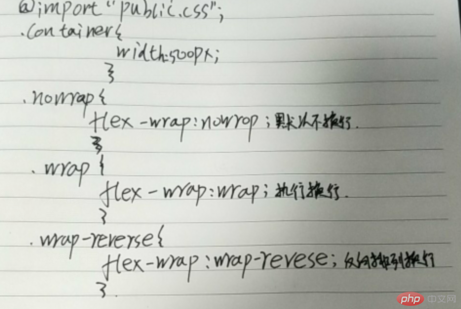 @import "public.css";
.container{
width:500px;
}
.nowrap{
flex-wrap:nowrop;默认不换行.
}
.wrap{
flex-wrap:wrap;执行换行.
}
.wrap-reverse{
flex-wrap:wrap-revese;反向排列换行
}.
php 中文网